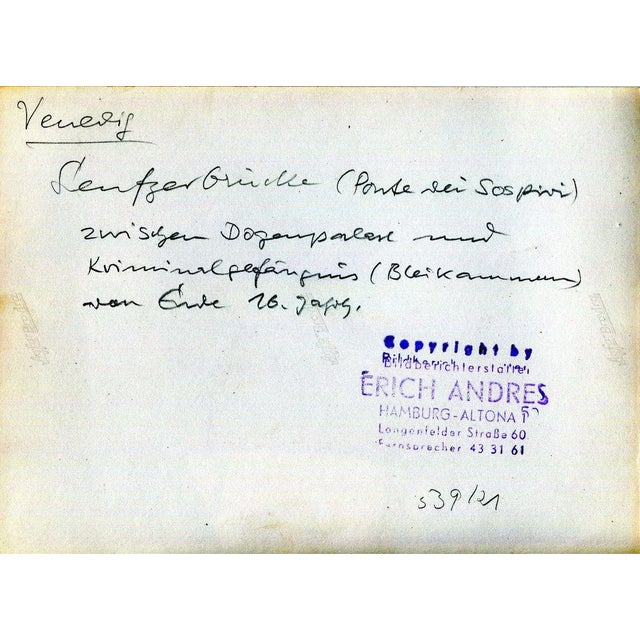 Venedig
Seufzerbrücke (Ponte dei Sospiri)
zwischen Dogenpalast und
Kriminalgefängnis (Bleikammern)
von Ende 16. Jahrh.
Copyright by
Bildberichterstatter
ERICH ANDRES
HAMBURG-ALTONA
Langenfelder Straße 60
Fernsprecher 43 31 61
539/21